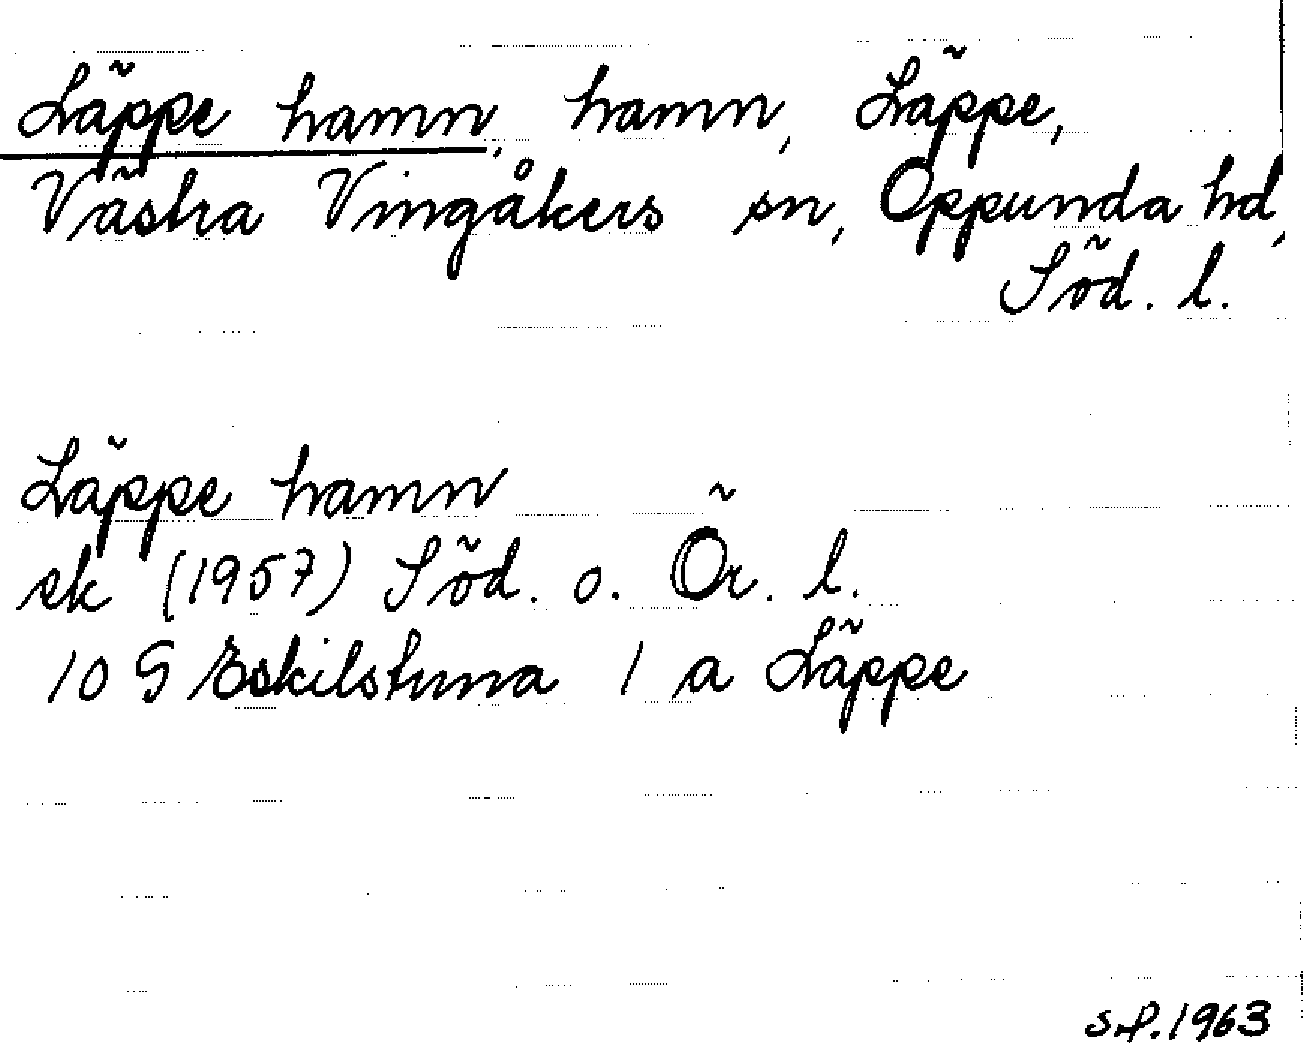 Läppe hamn, hamn, Läppe,
Västra Vingåkers sn, Oppunda hd,
Söd. l.
Läppe hamn
sk (1957) Söd. o. Ör. l.
10 G Eskilstuna 1 a Läppe
S.P. 1963